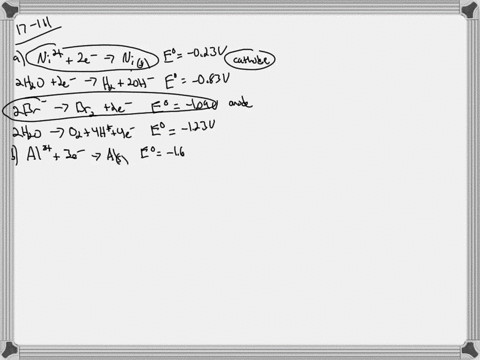 a) Ni²⁺ + 2e⁻ → Ni(s) E° = -0.23V cathode
2H₂O + 2e⁻ → H₂ + 2OH⁻ E° = -0.83V
2Br⁻ → Br₂ + 2e⁻ E° = -1.09V anode
2H₂O → O₂ + 4H⁺ + 4e⁻ E° = -1.23V
b) Al³⁺ + 3e⁻ → Al(s) E° = -1.6